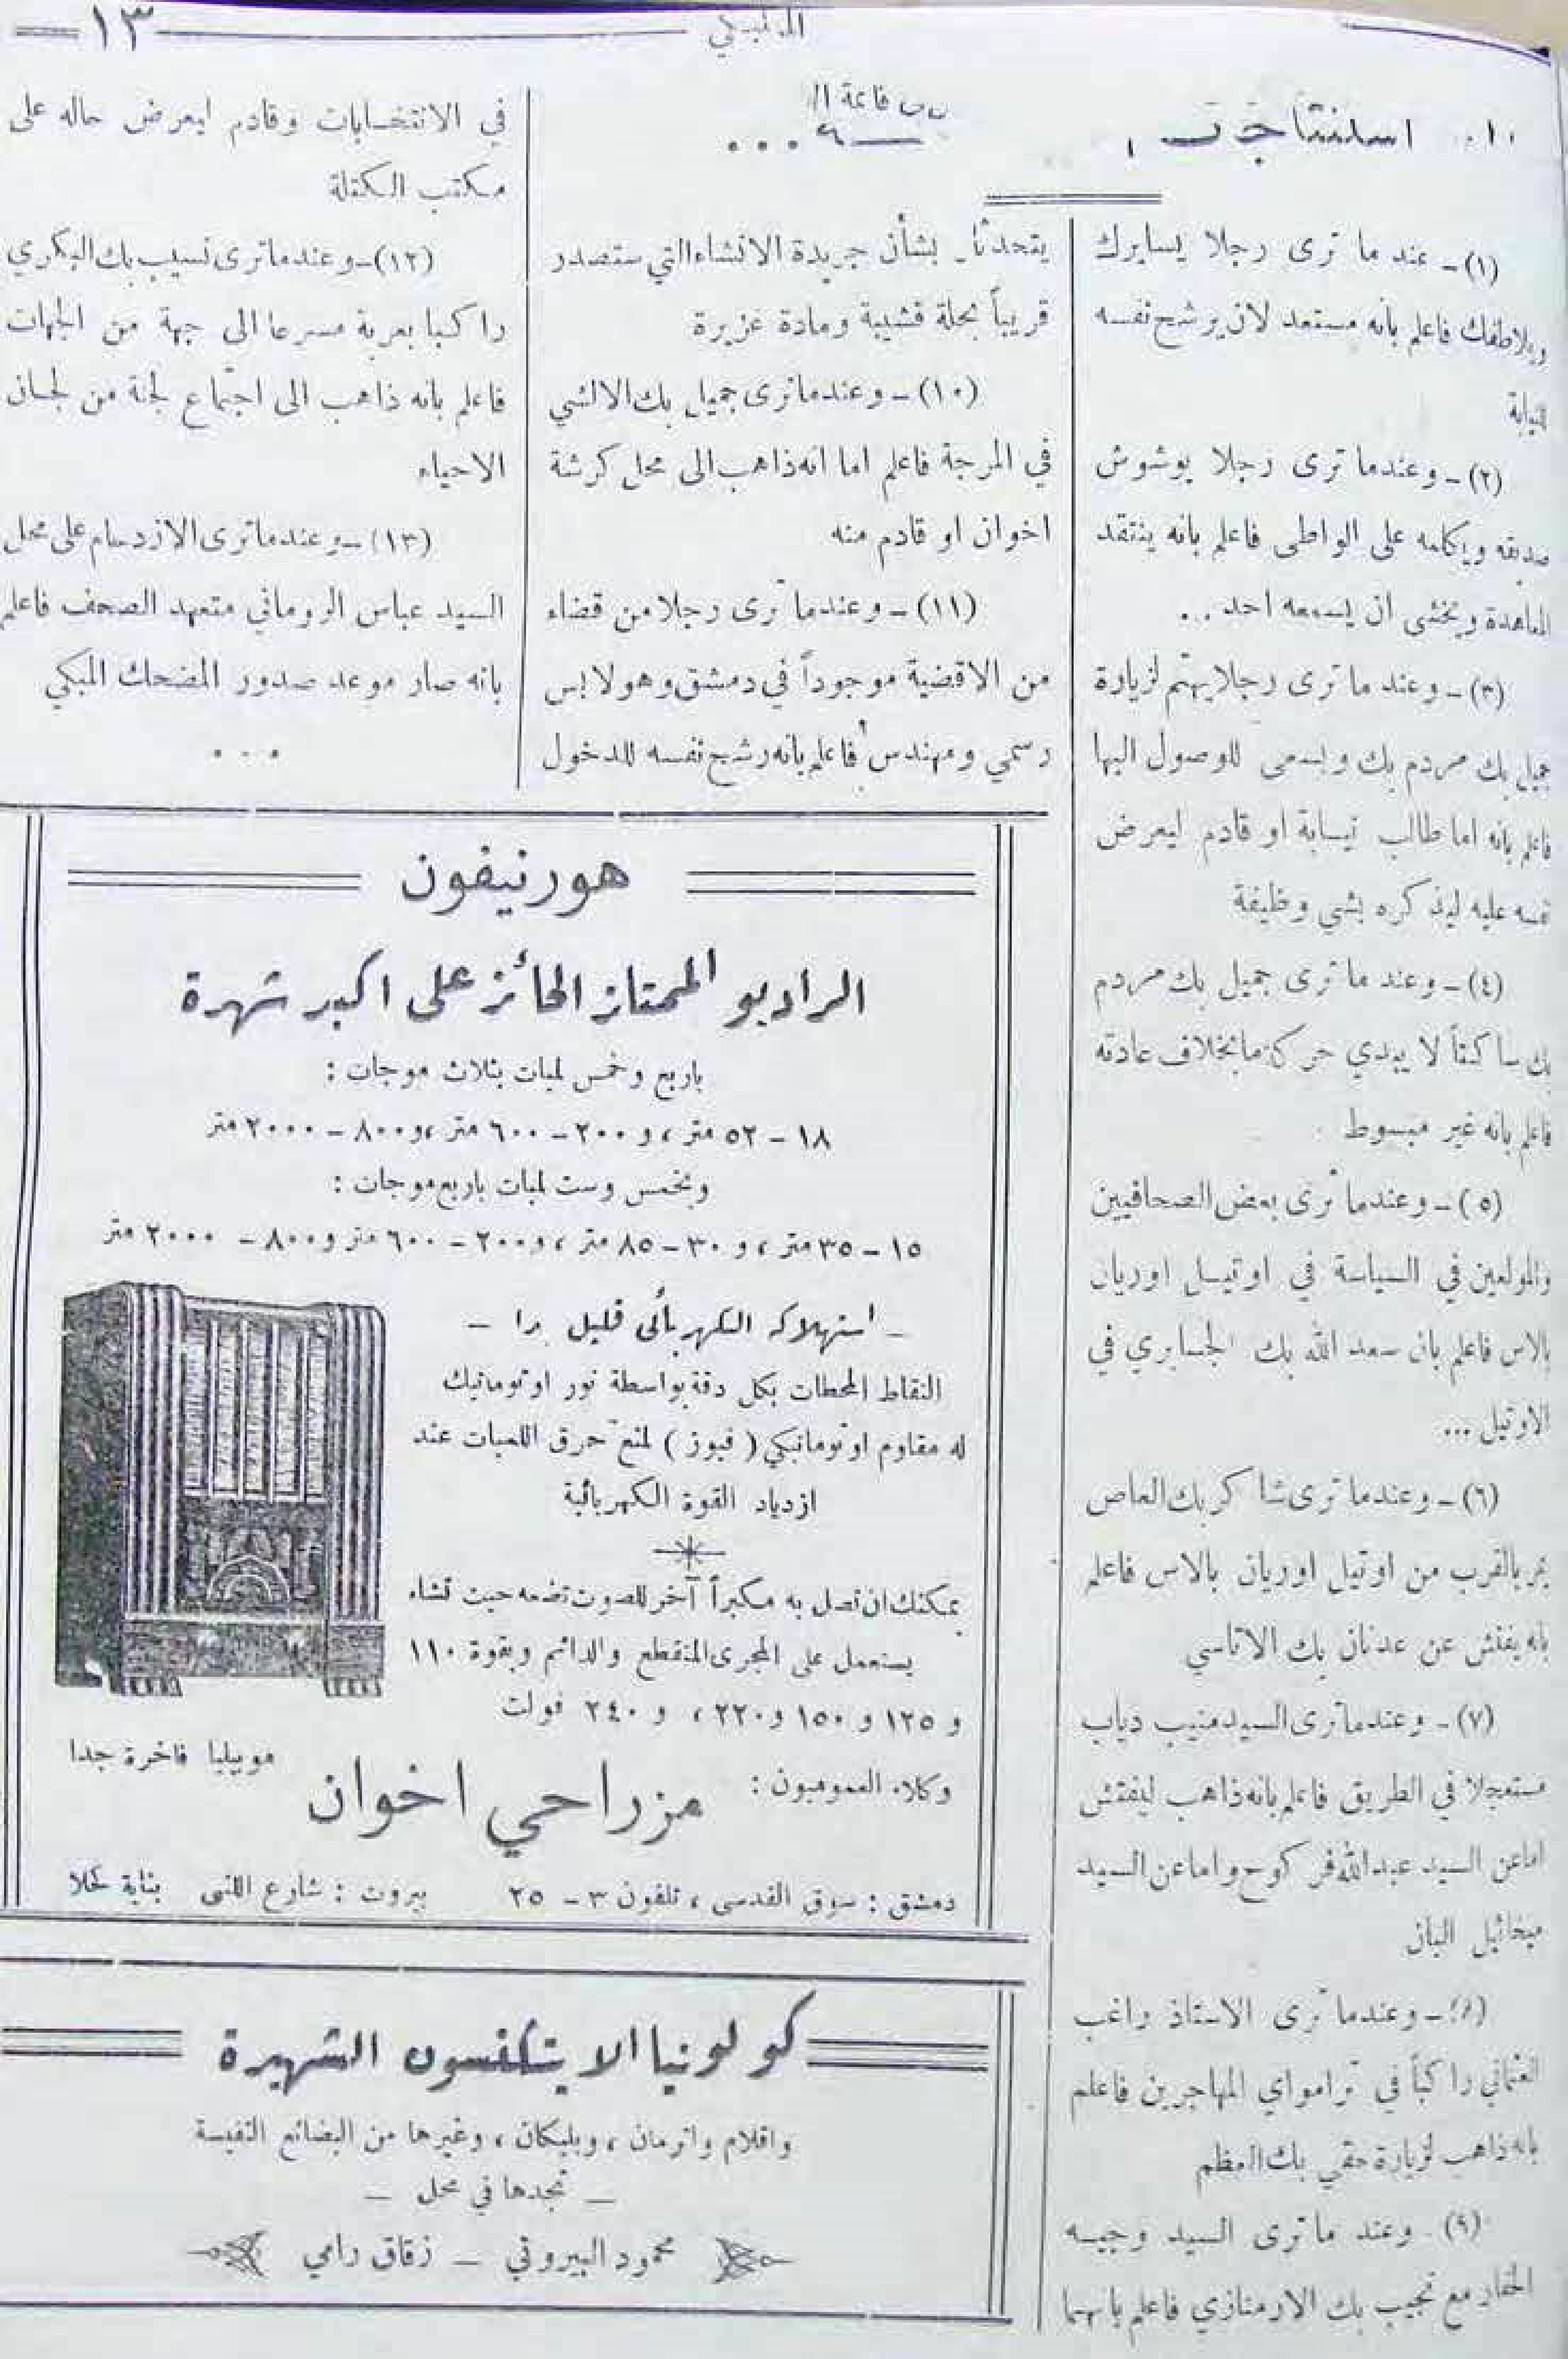 ١٣
استنتاجات
...
(١) - عند ما ترى رجلا يسايرك
ويلاطفك فاعلم بانه مستعد لان يرشح نفسه
للنيابة
(٢) - وعندما ترى رجلا يوشوش
صديقه ويكلمه على الواطي فاعلم بانه ينتقد
المعاهدة ويخشى ان يسمعه احد ...
(٣) - وعند ما ترى رجلا يهتم لزيارة
جميل بك مردم بك ويسعى للوصول اليها
فاعلم بانه اما طالب نيابة او قادم ليعرض
نفسه عليه ليذكره بشي وظيفة
(٤) - وعند ما ترى جميل بك مردم
بك ساكتاً لا يبدي حركة ما بخلاف عادته
فاعلم بانه غير مبسوط
(٥) - وعندما ترى بعض الصحافيين
والمولعين في السياسة في اوتيل اوريان
بالاس فاعلم بان سعد الله بك الجابري في
الاوتيل ...
(٦) - وعندما ترى شاكر بك العاص
يمر بالقرب من اوتيل اوريان بالاس فاعلم
بانه يفتش عن عدنان بك الاتاسي
(٧) - وعندما ترى السيد منيب دياب
مستعجلا في الطريق فاعلم بانه ذاهب ليفتش
اما عن السيد عبد الله فركوح واما عن السيد
ميخائيل اليان
(٨) - وعندما ترى الاستاذ راغب
العثماني راكباً في ترامواي المهاجرين فاعلم
بانه ذاهب لزيارة حقي بك العظم
(٩) - وعند ما ترى السيد وجيه
الحفار مع نجيب بك الارمنازي فاعلم بانهما
يتحدثان بشأن جريدة الانشاء التي ستصدر
قريباً بحلة قشيبة ومادة غزيرة
(١٠) - وعندما ترى جميل بك الالشي
في المرجة فاعلم اما انه ذاهب الى محل كرشة
اخوان او قادم منه
(١١) - وعندما ترى رجلا من قضاء
من الاقضية موجوداً في دمشق وهو لابس
رسمي ومهندس فاعلم بانه رشح نفسه للدخول
في الانتخابات وقادم ليعرض حاله على
مكتب الكتلة
(١٢) - وعندما ترى نسيب بك البكري
راكبا بعربة مسرعا الى جهة من الجهات
فاعلم بانه ذاهب الى اجتماع لجنة من لجان
الاحياء
(١٣) - وعندما ترى الازدحام على محل
السيد عباس الروماني متعهد الصحف فاعلم
بانه صار موعد صدور المضحك المبكي
...
هورنيفون
الراديو الممتاز الحائز على اكبر شهرة
باربع وخمس لمبات بثلاث موجات :
١٨ - ٥٢ متر ، و ٢٠٠ - ٦٠٠ متر ، و ٨٠٠ - ٢٠٠٠ متر
وبخمس وست لمبات باربع موجات :
١٥ - ٣٥ متر ، و ٣٠ - ٨٥ متر ، و ٢٠٠ - ٦٠٠ متر و ٨٠٠ - ٢٠٠٠ متر
- استهلاكه الكهربائى قليل جدا -
التقاط المحطات بكل دقة بواسطة نور اوتوماتيك
له مقاوم اوتوماتيكي ( فيوز ) لمنع حرق اللمبات عند
ازدياد القوة الكهربائية
يمكنك ان تصل به مكبراً آخر للصوت تضعه حيث تشاء
يستعمل على المجرى المتقطع والدائم وبقوة ١١٠
و ١٢٥ و ١٥٠ و ٢٢٠ ، و ٢٤٠ فولت
موبيليا فاخرة جدا
وكلاء العموميون : مزراحي اخوان
دمشق : سوق القدسي ، تلفون ٣ - ٢٥ بيروت : شارع اللنبي بناية كحلا
كولونيا الاتكنسون الشهيرة
واقلام واترمان ، وبليكان ، وغيرها من البضائع النفيسة
- تجدها في محل -
محمود البيروتي - زقاق رامي